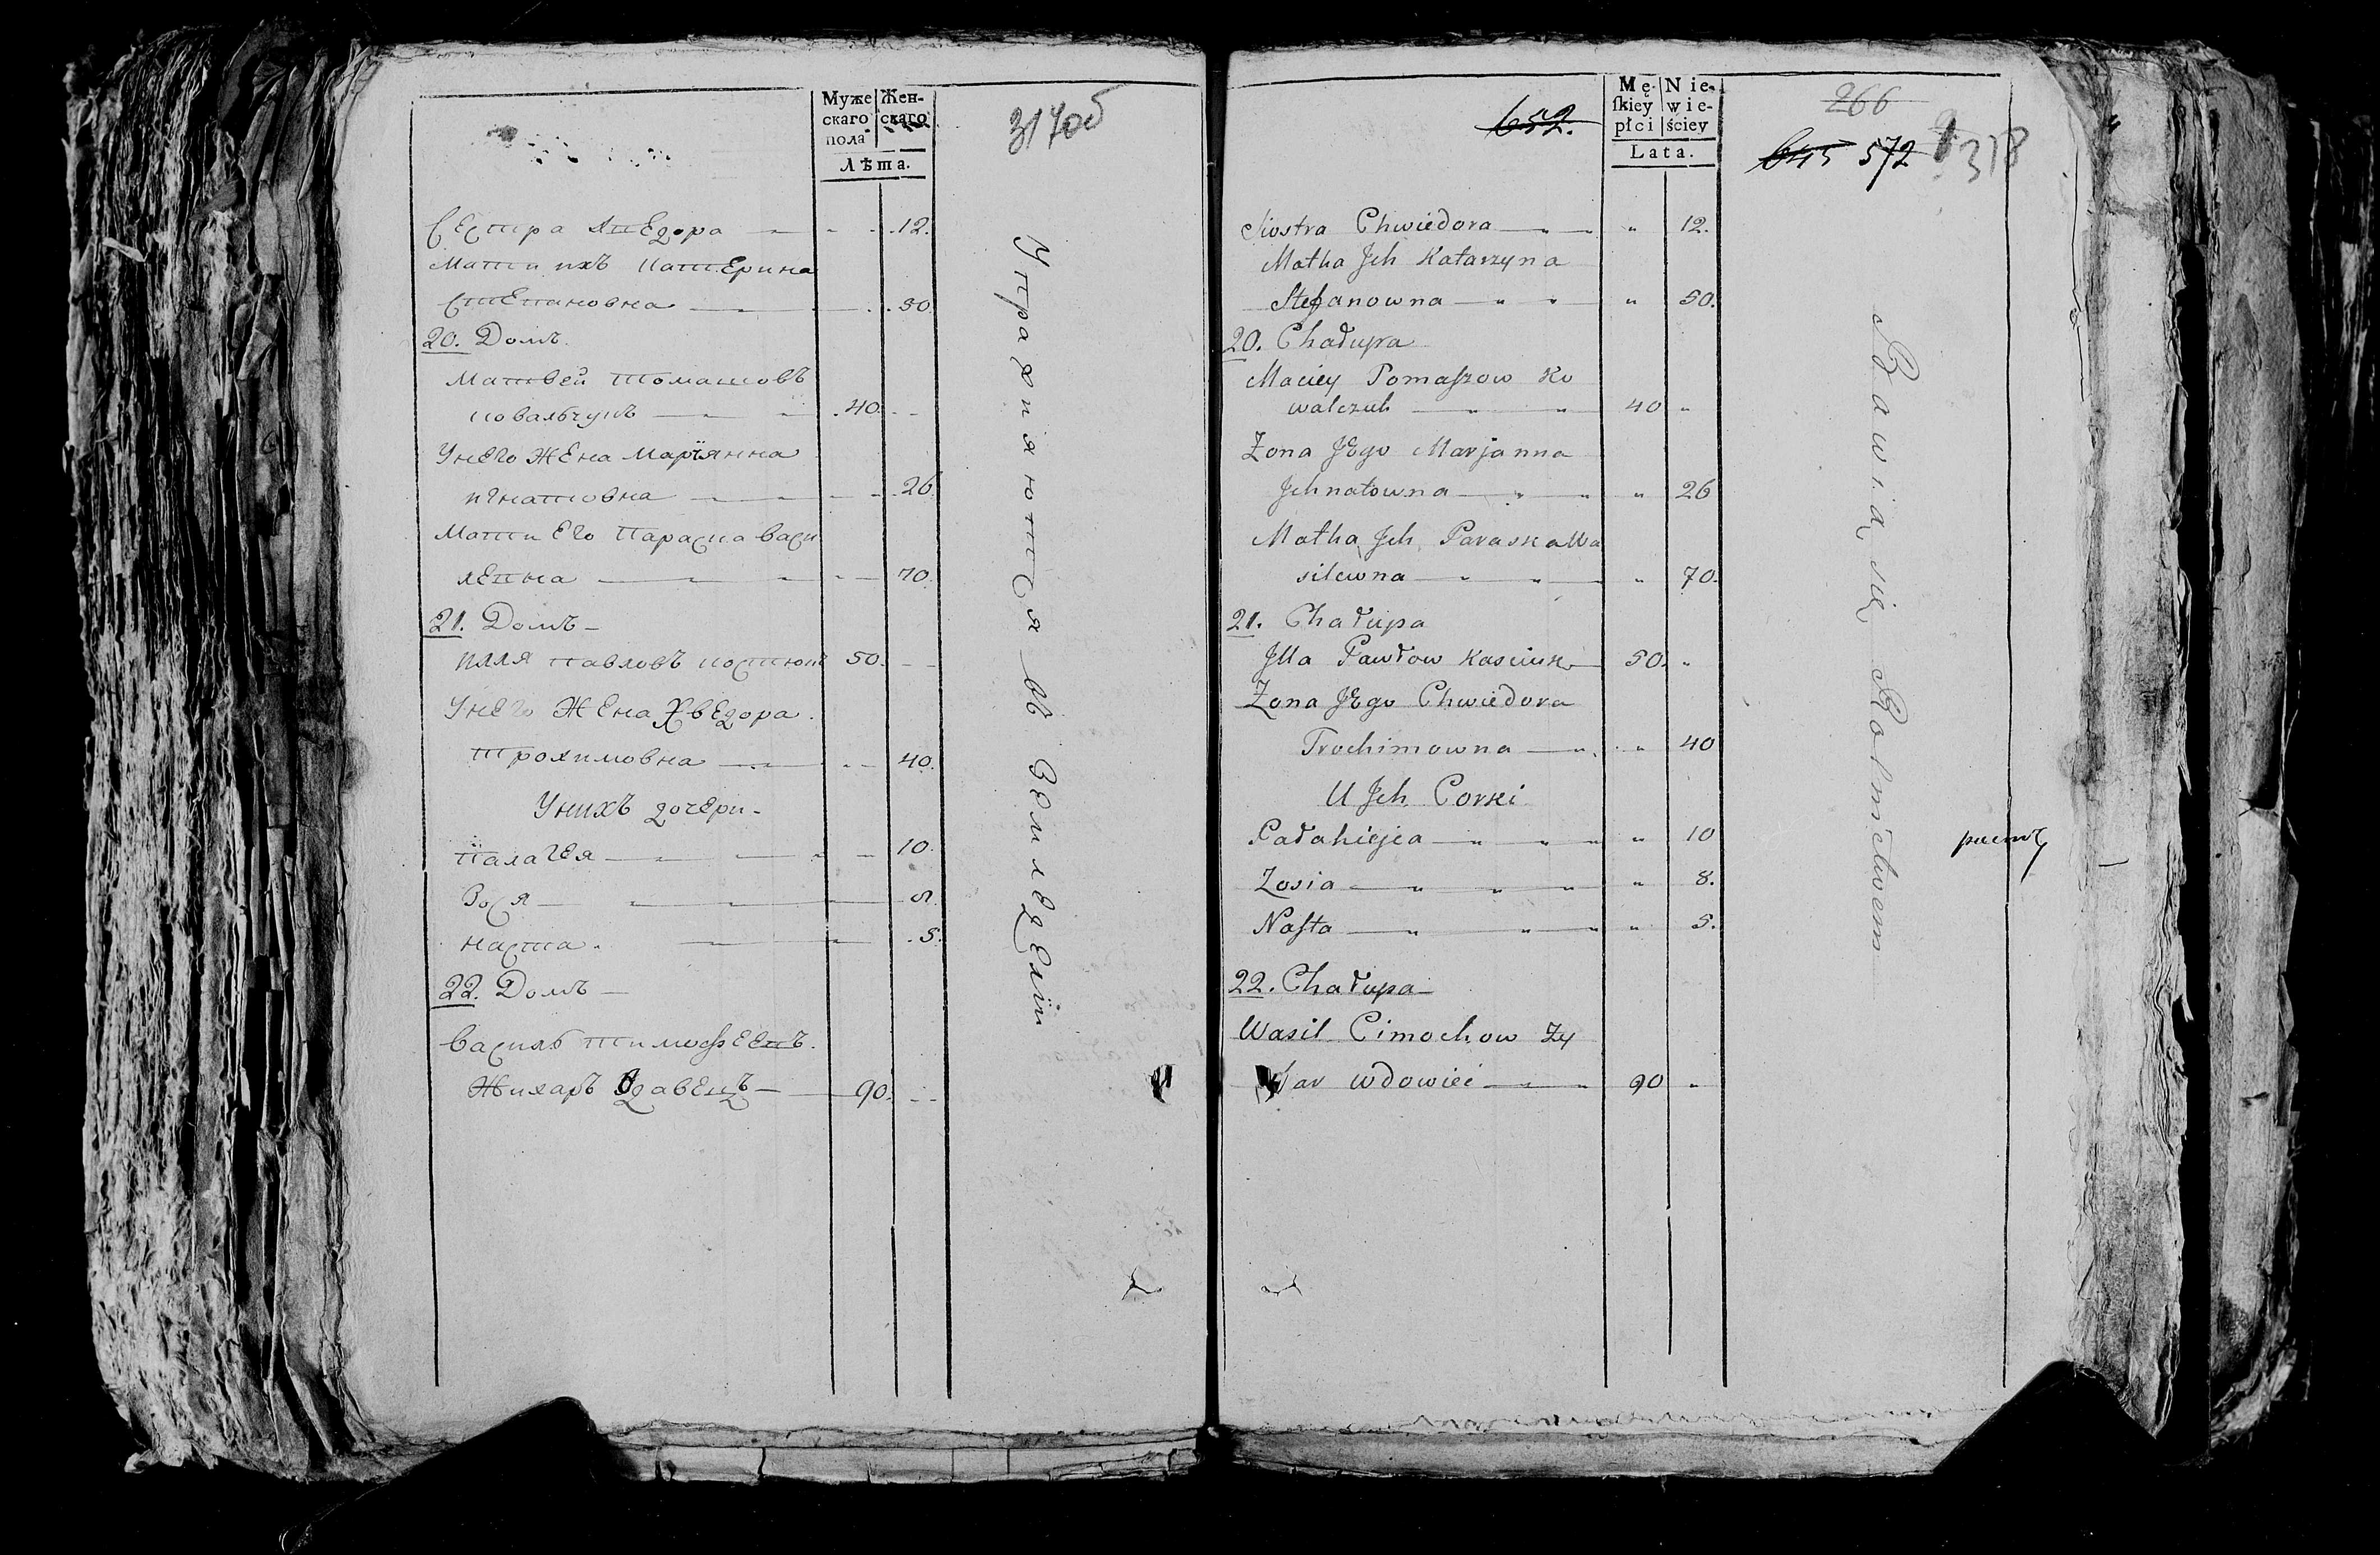 Муже
скаго
пола
Жен-
скаго
Лѣта.
317об
Сестра Хведора 12.
Мати ихъ Катерина
Степановна 50.
20. Домъ
Матвей Томашовъ
Ковальчукъ 40.
Унего жена Марїянна
игнатовна 26
Мати его Параска Васи
левна 70.
21. Домъ
Илля Павловъ Костюкъ 50.
Унего жена Хведора
Трохимовна 40.
Унихъ дочери
Палагея 10.
Зося 8
Наста 5.
22. Домъ
Василь Тимофеевъ
Жихаръ Вдавецъ 90.
Упражняются въ Земледелїи
652.
Mę-
skiey
płci
Nie-
wie-
ściey
Lata.
266
645 572
318
Siostra Chwiedora " 12.
Matka Jch Katarzyna
Stefanowna " 50.
20. Chałupa
Maciey Tomaszow Ko
walczuk 40 "
Zona JEgo Marjanna
Jchnatowna " 26
Matka Jch Paraska Wa
silewna " 70.
21. Chałupa
Jlla Pawłow Kasciuk 50. "
Zona JEgo Chwiedora
Trochimowna " 40
U Jch Corki
Pałahieja " 10
Zosia " 8.
Nasta " 5.
22. Chałupa
Wasil Cimochow Zy
har wdowiec 90 "
Bawią się Rolnictwem